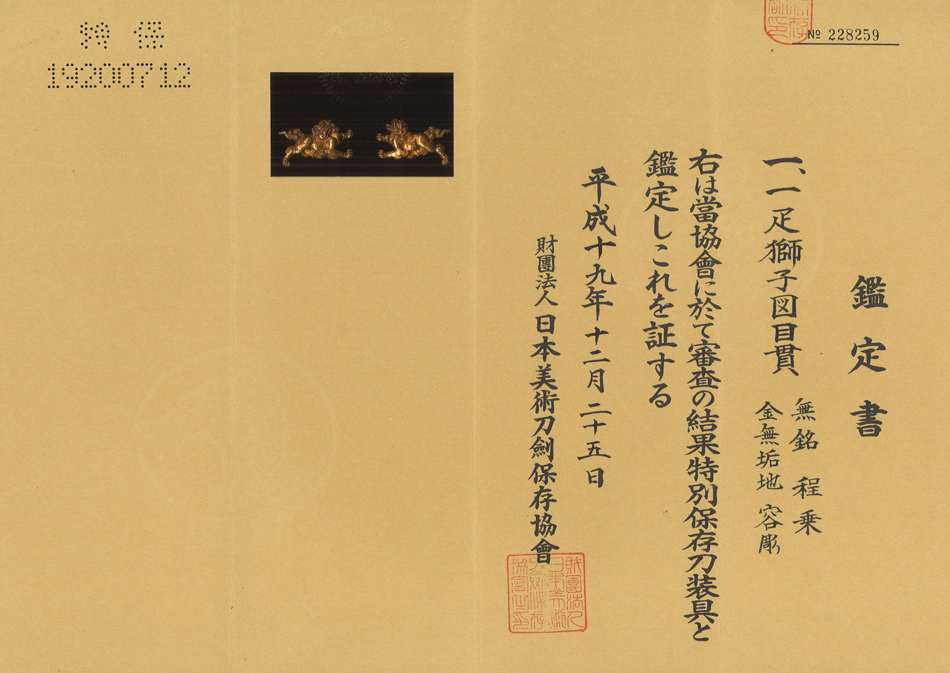 № 228259
鑑定書
一、一疋獅子図目貫
無銘 程乗
金無垢地 容彫
右は當協會に於て審査の結果特別保存刀装具と
鑑定しこれを証する
平成十九年十二月二十五日
財團法人日本美術刀劍保存協會
特 保
19200712
財團法人
日本美術
刀劍保存
協會之印